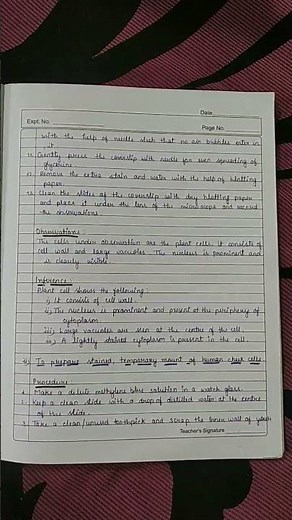 Date
Expt. No.
Page No.
with the help of needle such that no air bubbles enter in
it.
11. Gently press the coverslip with needle for even spreading of
glycerine.
12. Remove the extra stain and water with the help of blotting
paper.
13. Clean the slides of the coverslip with dry blotting paper
and place it under the lens of the microscope and record
the observations.
Observations :
The cells under observation are the plant cells. It consists of
cell wall and large vacuoles. The nucleus is prominent and
is clearly visible.
Inference :
Plant cell shows the following :
i) It consists of cell wall.
ii) The nucleus is prominent and present at the periphery of
cytoplasm.
iii) Large vacuoles are seen at the centre of the cell.
iv) A slightly stained cytoplasm is present in the cell.
To prepare stained, temporary mount of human cheek cells
Procedure
1. Make a dilute methylene blue solution in a watch glass.
2. Keep a clean slide with a drop of distilled water at the centre
of this slide.
3. Take a clean/unused toothpick and scrap the inner wall of your
Teacher's Signature